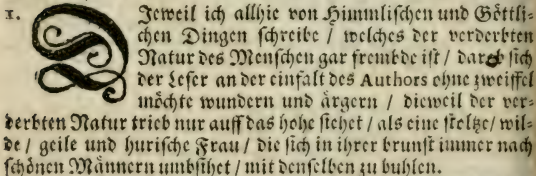 1. DJeweil ich allhie von Himmlischen und Göttli-
chen Dingen schreibe / welches der verderbten
Natur des Menschen gar frembde ist / darob sich
der Leser an der einfalt des Authors ohne zweiffel
möchte wundern und ärgern / dieweil der ver-
derbten Natur trieb nur auff das hohe siehet / als eine stoltze / wil-
de / geile und hurische Frau / die sich in ihrer brunst immer nach
schönen Männern umbsihet / mit denselben zu buhlen.